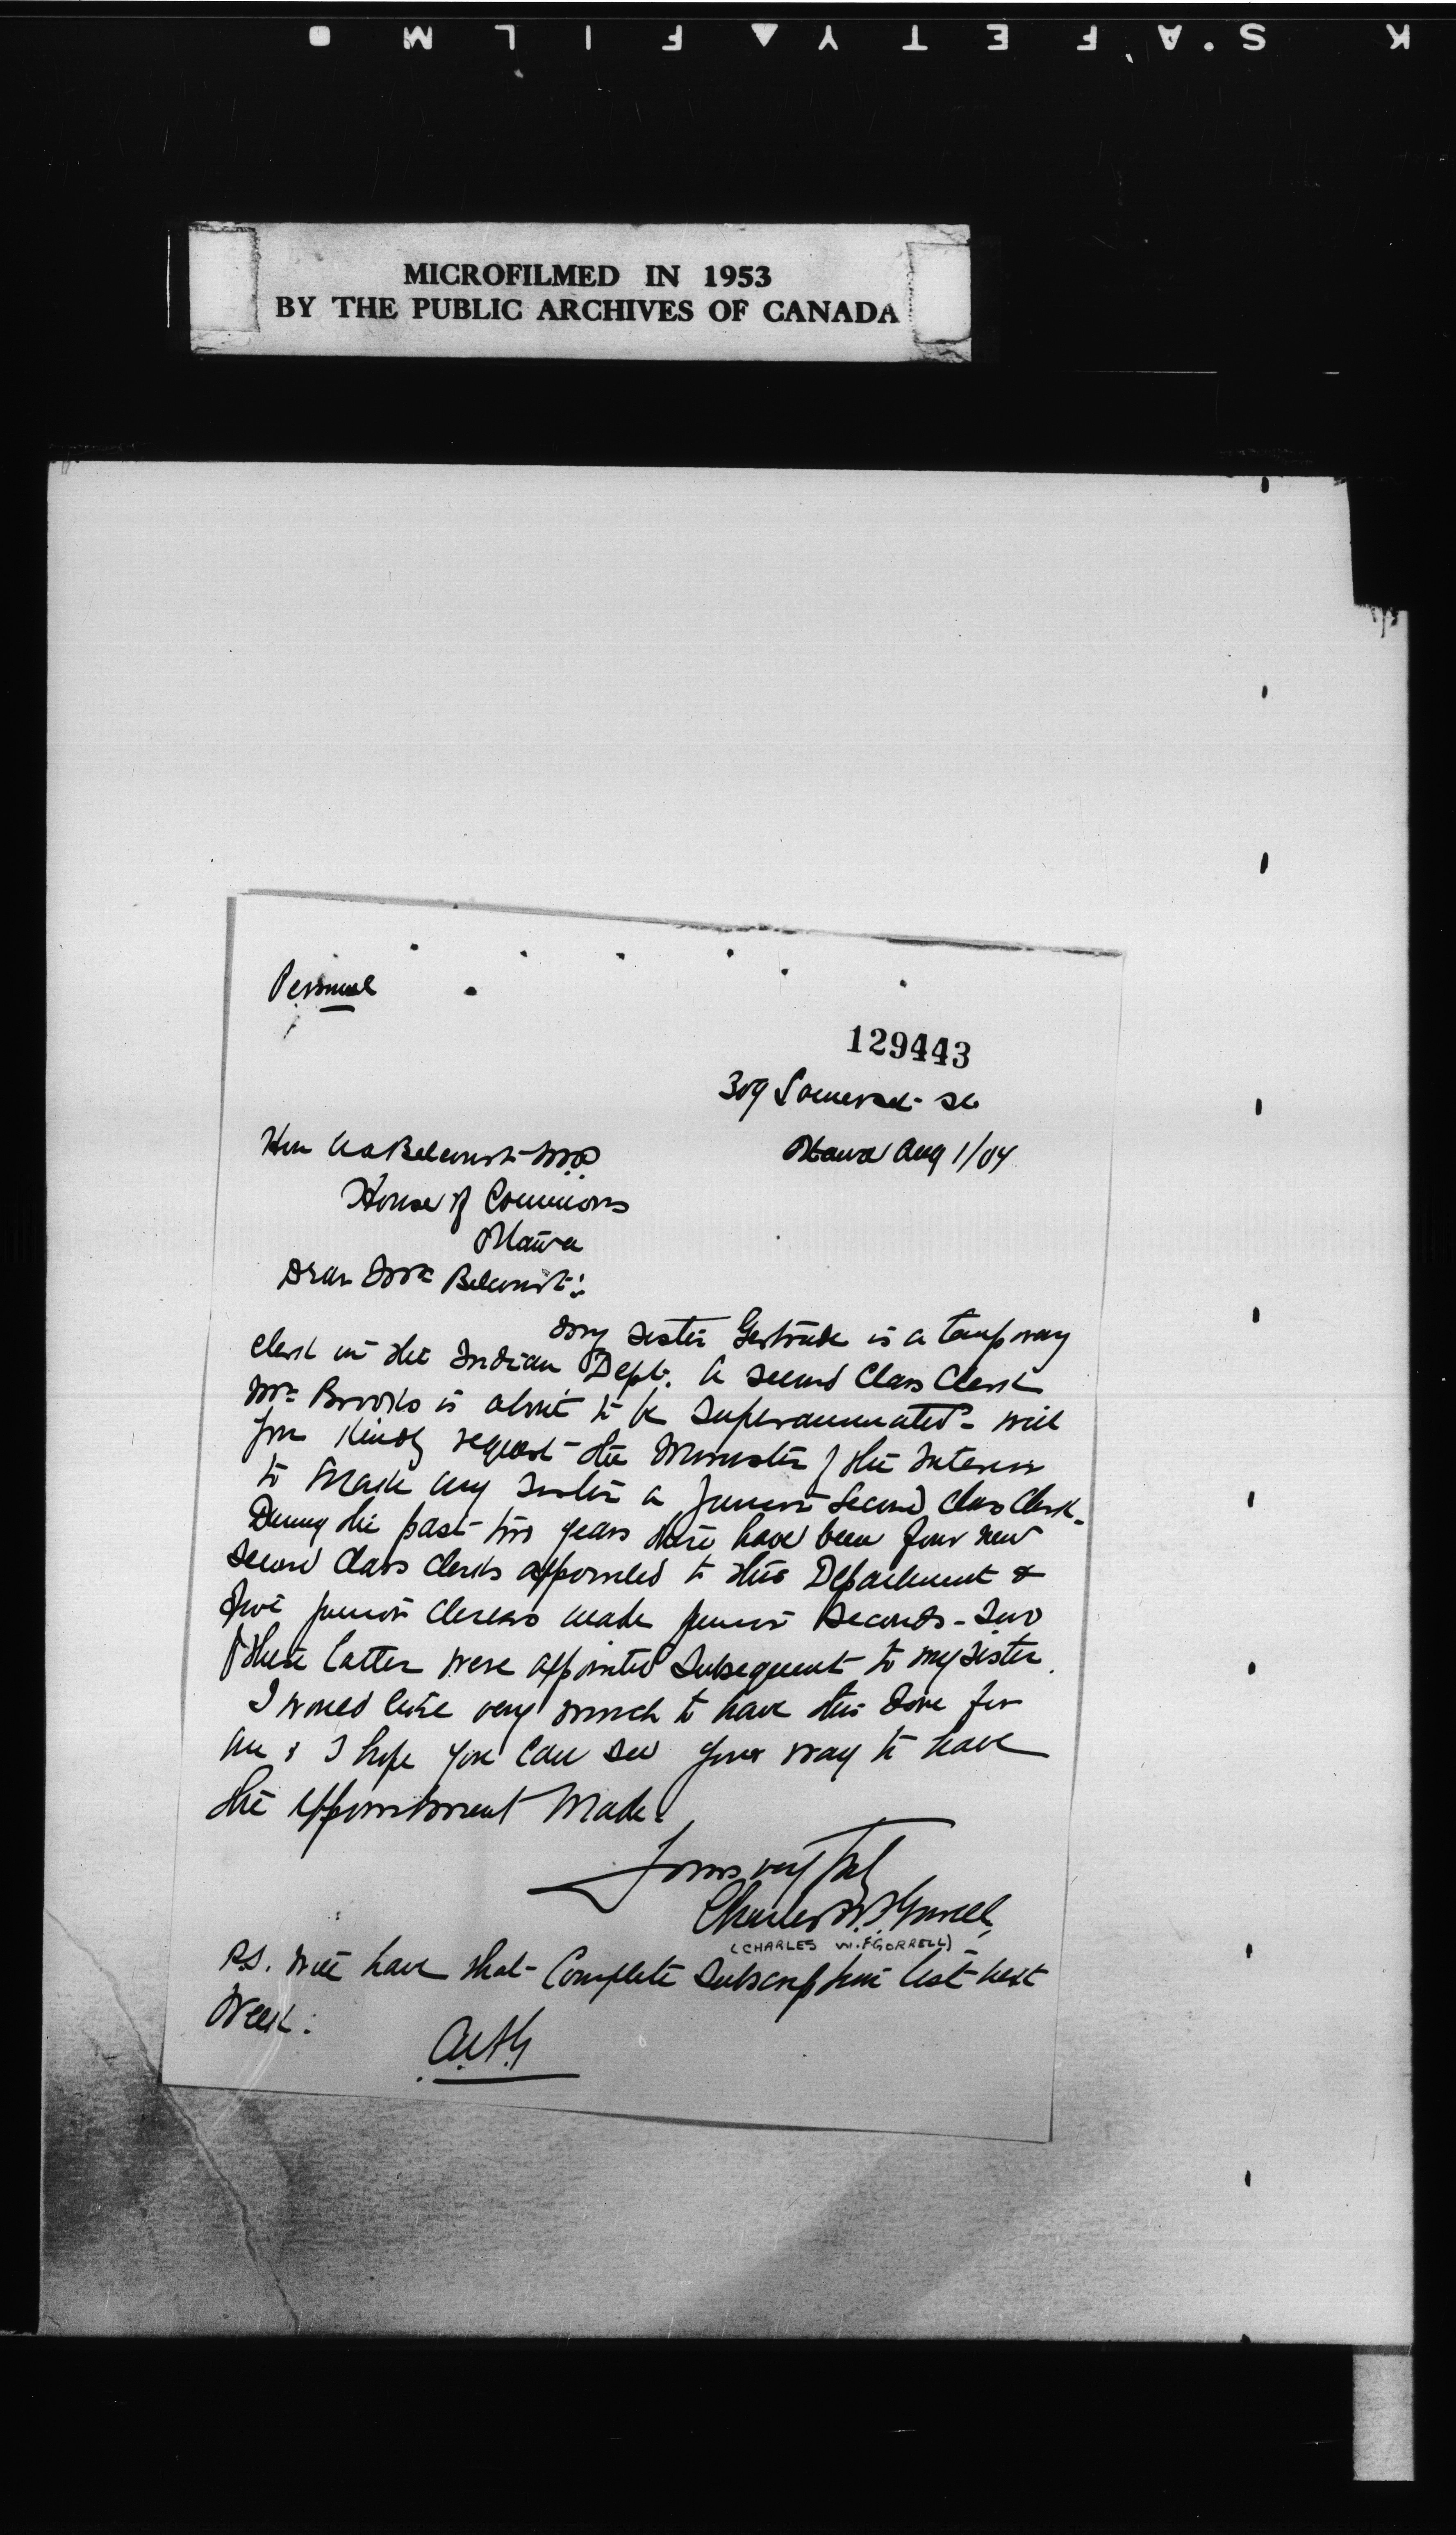 K S'AFETY FILM
MICROFILMED IN 1953
BY THE PUBLIC ARCHIVES OF CANADA
Personal
129443
309 Somerset St
Ottawa Aug 1/04
Hon Belcourt MP
House of Commons
Ottawa
Dear Mr Belcourt:
My sister Gertrude is a temporary
clerk in the Indian Dept. A second class clerk
Mr Brooks is about to be superannuated - will
you kindly request the Minister of the Interior
to make my sister a junior second class clerk.
During the past two years there have been four new
second class clerks appointed to this Department &
five junior clerks made junior seconds - two
of these latter were appointed subsequent to my sister.
I would like very much to have this done for
me & I hope you can see your way to have
the appointment made.
Yours very truly
Charles W. F. Gorrell
(CHARLES W.F GORRELL)
P.S. Will have that complete subscription list next
week.